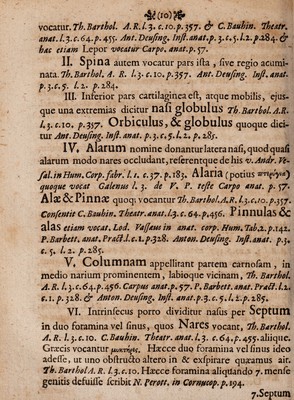 (10)
vocatur. Th. Barthol. A.R.l.3.c.10.p.357. & C. Bauhin. Theatr.
anat.l.3.c.64.p.455. Ant. Deusing. Inst. anat.p.3.c.5.l.2.p.284. &
hac etiam Lepor vocatur Carpo. anat.p.57.
II. Spina autem vocatur pars ista, sive regio acumi-
nata. Th. Barthol. A. R. l.3.c.10. p.357. Ant. Deusing. Inst. anat.
p.3.c.5. l.2. p.284.
III. Inferior pars cartilaginea est, atque mobilis, ejus-
que una extremias dicitur nasi globulus Th. Barthol. A.R.
l.3.c.10. p.357. Orbiculus, & globulus quoque dici-
tur Ant. Deusing. Inst. anat. p.3. c.5. l.2. p.285.
IV. Alarum nomine donantur latera nasi, quod quasi
alarum modo nares occludant, referentque de his v. Andr. Ve-
sal. in Hum. Corp. fabr. l.1. c.37. p.183. Alaria (potius πτερύγια)
quoque vocat Galenus l.3. de V. P. teste Carpo anat. p.57.
Alæ & Pinnæ quoq; vocantur Th. Barthol. A.R.l.3.c.10.p.357.
Consentit C. Bauhin. Theatr. anat.l.3.c.64.p.456. Pinnulas &
alas etiam vocat. Lod. Vassæus in anat. corp. Hum. Tab.2.p.142.
P. Barbett. anat. Pract.l.c.1.p.328. Anton. Deusing. Inst. anat. p.3.
c.5. l.2. p.285.
V. Columnam appellitant partem carnosam, in
medio narium prominentem, labioque vicinam, Th. Barthol.
A. R. l.3.c.64.p.456. Carpus anat.p.57. P. Barbett. anat. Pract.l.2.
c.1. p.328. & Anton. Deusing. Inst. anat. p.3.c.5.l.2.p.285.
VI. Intrinsecus porro dividitur nasus per Septum
in duo foramina vel sinus, quos Nares vocant, Th. Barthol.
A. R. l.3.c.10. C. Bauhin. Theatr. anat.l.3.c.64.p.455. aliique.
Græcis vocantur μυκτῆρες. Hæcce duo foramina vel sinus ideo
adesse, ut uno obstructo altero in & exspirare quæamus air.
Th. Barthol A. R. l.3.c.10. Hæcce foramina aliquando 7. mense
genitis defuisse scribit N. Perott. in Cornucop. p.194.
7. Septum